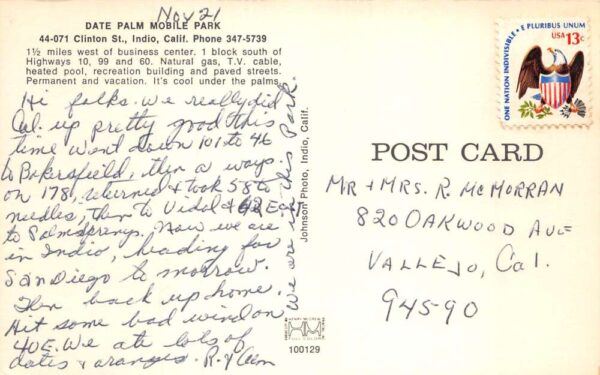 Nov 21
DATE PALM MOBILE PARK
44-071 Clinton St., Indio, Calif. Phone 347-5739
1½ miles west of business center. 1 block south of
Highways 10, 99 and 60. Natural gas, T.V. cable,
heated pool, recreation building and paved streets.
Permanent and vacation. It's cool under the palms.
Hi folks. We really did
Cal. up pretty good this
time went down 101 to 46
to Bakersfield, then a ways
on 178, returned & took 58 to
needles, then to Vidal & 62 E
to Palmsprings. Now we are
in Indio, heading for
San Diego to morrow.
Then back up home.
Hit some bad wind on
40 E. We ate lots of
dates & oranges. R. &
We are in this Park.
Johnson Photo, Indio, Calif.
100129
ONE NATION INDIVISIBLE • E PLURIBUS UNUM
USA 13c
POST CARD
MR + MRS. R. McMORRAN
820 OAKWOOD AVE
VALLEJO, Cal.
94590